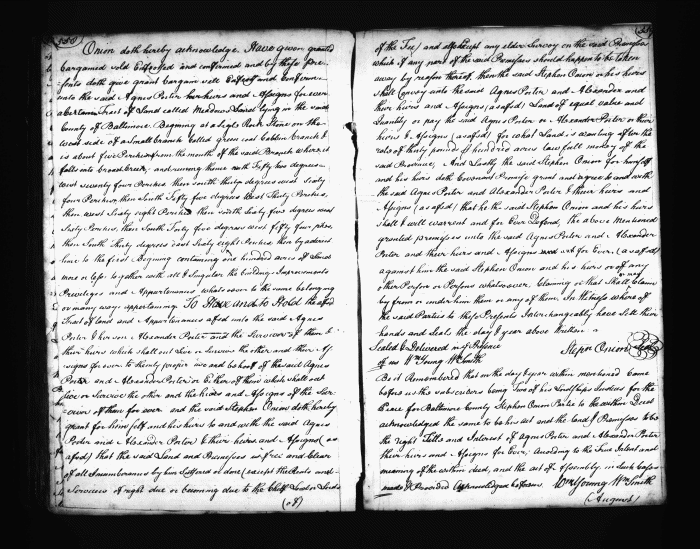 Onion doth hereby acknowledge. Have given granted
bargained sold Enfeoffed and confirmed and by these pre-
sents doth give grant bargain sell Enfeoff and confirm
unto the said Agnes Porter her heirs and Assigns for ever
a certain Tract of Land called Meadow Land lying in the said
County of Baltimore Begining at a high Rock Stone on the
west side of a Small branch called green and Cabbin branch &
is about five Perches from the mouth of the said Branch where it
falls into broad creek and runing thence north Fifty two degrees
west seventy four Perches then south thirty degrees west Sixty
four Perches then South Fifty five degrees West Thirty Perches,
then west Sixty eight Perches then south Sixty five degrees west
Sixty Perches, then South Forty five degrees west fifty four perches
then South Thirty degrees east Sixty eight Perches then by a direct
line to the first Begining containing one hundred acres of Land
more or less together with all & Singular the buildings Improvements
Priviledges and Appurtenances whatsoever to the same belonging
or in any ways appertaining. To Have and to Hold the affsd
Tract of land and Appurtenances afsd unto the said Agnes
Porter & her son Alexander Porter and the Survivor of them &
their heirs which shall out live or Survive the other and their As-
signs for ever to the only proper use and behoof of the said Agnes
Porter and Alexander Porter or Either of them which shall out
live or Survive the other and the heirs and Assigns of the Sur-
vivor of them for ever and the said Stephen Onion doth hereby
grant for himself and his heirs to and with the said Agnes
Porter and Alexander Porter & their heirs and Assigns (as
afsd) that the said Land and Premisses is free and Clear
of all Incumbrances by him Suffered or done (except the Rents and
Services of right due or becoming due to the Chief Lord or Lords
(of)
of the Fee) and also Except any elder Survey on the said Premisses
which if any part of the said Premisses should happen to be taken
away by reason thereof, then the said Stephen Onion or his heirs
shall Convey unto the said Agnes Porter and Alexander and
their heirs and Assigns (as afsd) Land of equal value and
Quantity or pay the said Agnes Porter or Alexander Porter or their
heirs & Assigns (as afsd) for what Land is wanting after the
rate of thirty pounds & hundred acres lawfull money of the
said Province, And Lastly the said Stephen Onion for himself
and his heirs doth Covenant Promise grant and agree to and with
the said Agnes Porter and Alexander Porter & their heirs and
Assigns (as afsd) that he the said Stephen Onion and his heirs
shall & will warrent and for Ever Defend, the above Mentioned
granted premisses unto the said Agnes Porter and Alexander
Porter and their heirs and Assigns for Ever (as afsd)
against him the said Stephen Onion and his heirs or of any
other Person or Persons whatsoever, Claiming or that Shall Claim
by from or under him them or any of them. In Witness whereof
the said Parties to these Presents Interchangeably have Sett their
hands and Seals the day & year above Written
Sealed & Delivered in ye Presence
Stephn Onion
of us Wm Young Wm Smith
Be it Remembered that on the day & year within mentioned Came
before us the subscribers being two of his Lordships Justices for the
Peace for Baltimore County Stephen Onion Partie to the within Deed
acknowledged the same to be his act and the land & Premisses to be
the right Title and Interest of Agnes Porter and Alexander Porter
their heirs and Assigns for Ever, According to the True Intent and
meaning of the within deed, and the act of Assembly in such Cases
made & Provided Acknowledged before us Wm Young Wm Smith
(August)